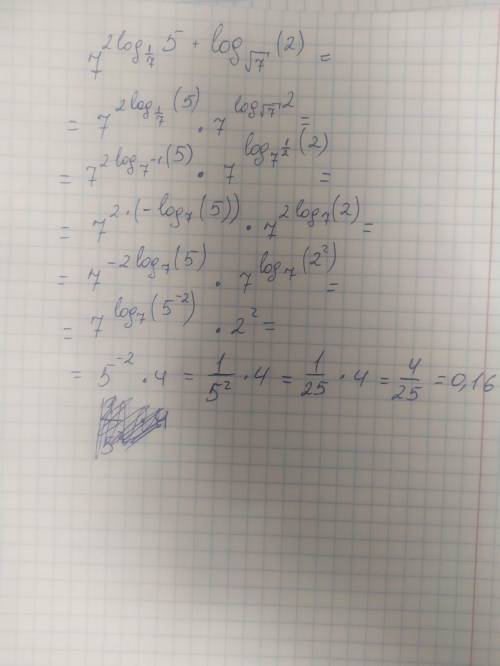 7^{2log_{1/7} 5 + log_{√7}(2)} =
= 7^{2log_{1/7}(5)} · 7^{log_{√7} 2} =
= 7^{2log_{7^{-1}}(5)} · 7^{log_{7^{1/2}}(2)} =
= 7^{2·(-log_7(5))} · 7^{2log_7(2)} =
= 7^{-2log_7(5)} · 7^{log_7(2^2)} =
= 7^{log_7(5^{-2})} · 2^2 =
= 5^{-2} · 4 = 1/5^2 · 4 = 1/25 · 4 = 4/25 = 0,16